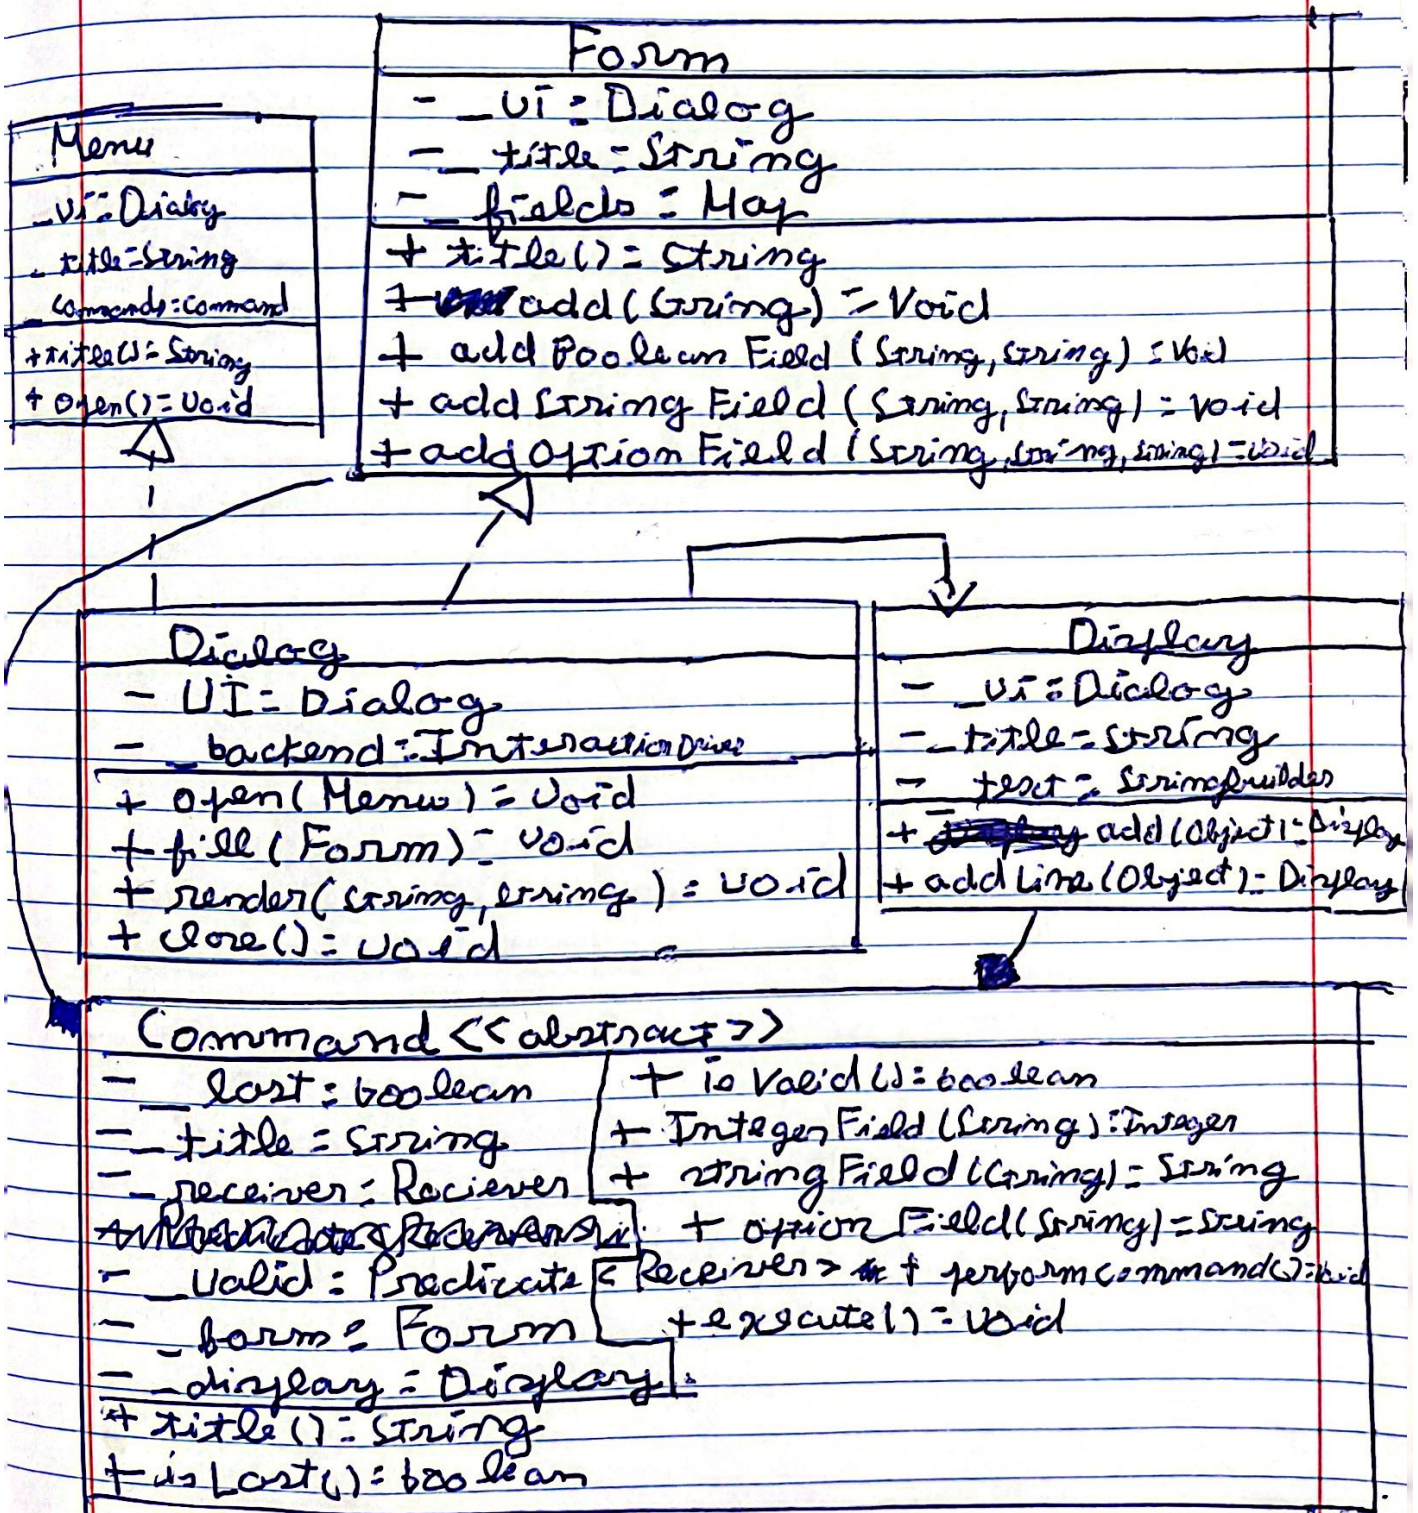 Form
- _ui : Dialog
- _title : String
- _fields : Map
+ title() : String
+ add(String) : Void
+ add Boolean Field (String, String) : Void
+ add String Field (String, String) : void
+ add Option Field (String, String, String) : void
Menu
_ui : Dialog
_title : String
_commands : Command
+ title() : String
+ open() : Void
Dialog
- UI : Dialog
- _backend : InteractionDriver
+ open(Menu) : Void
+ fill (Form) : void
+ render(String, String) : void
+ close() : void
Display
- _ui : Dialog
- _title : String
- _text : Stringbuilder
+ add (Object) : Display
+ add Line (Object) : Display
Command <<abstract>>
- _last : boolean
- _title : String
- _receiver : Reciever
- _valid : Predicate < Receiver >
- _form : Form
- _display : Display
+ title() : String
+ isLast() : boolean
+ is Valid() : boolean
+ Integer Field (String) : Integer
+ string Field (String) : String
+ option Field (String) : String
+ perform command() : void
+ execute() : void